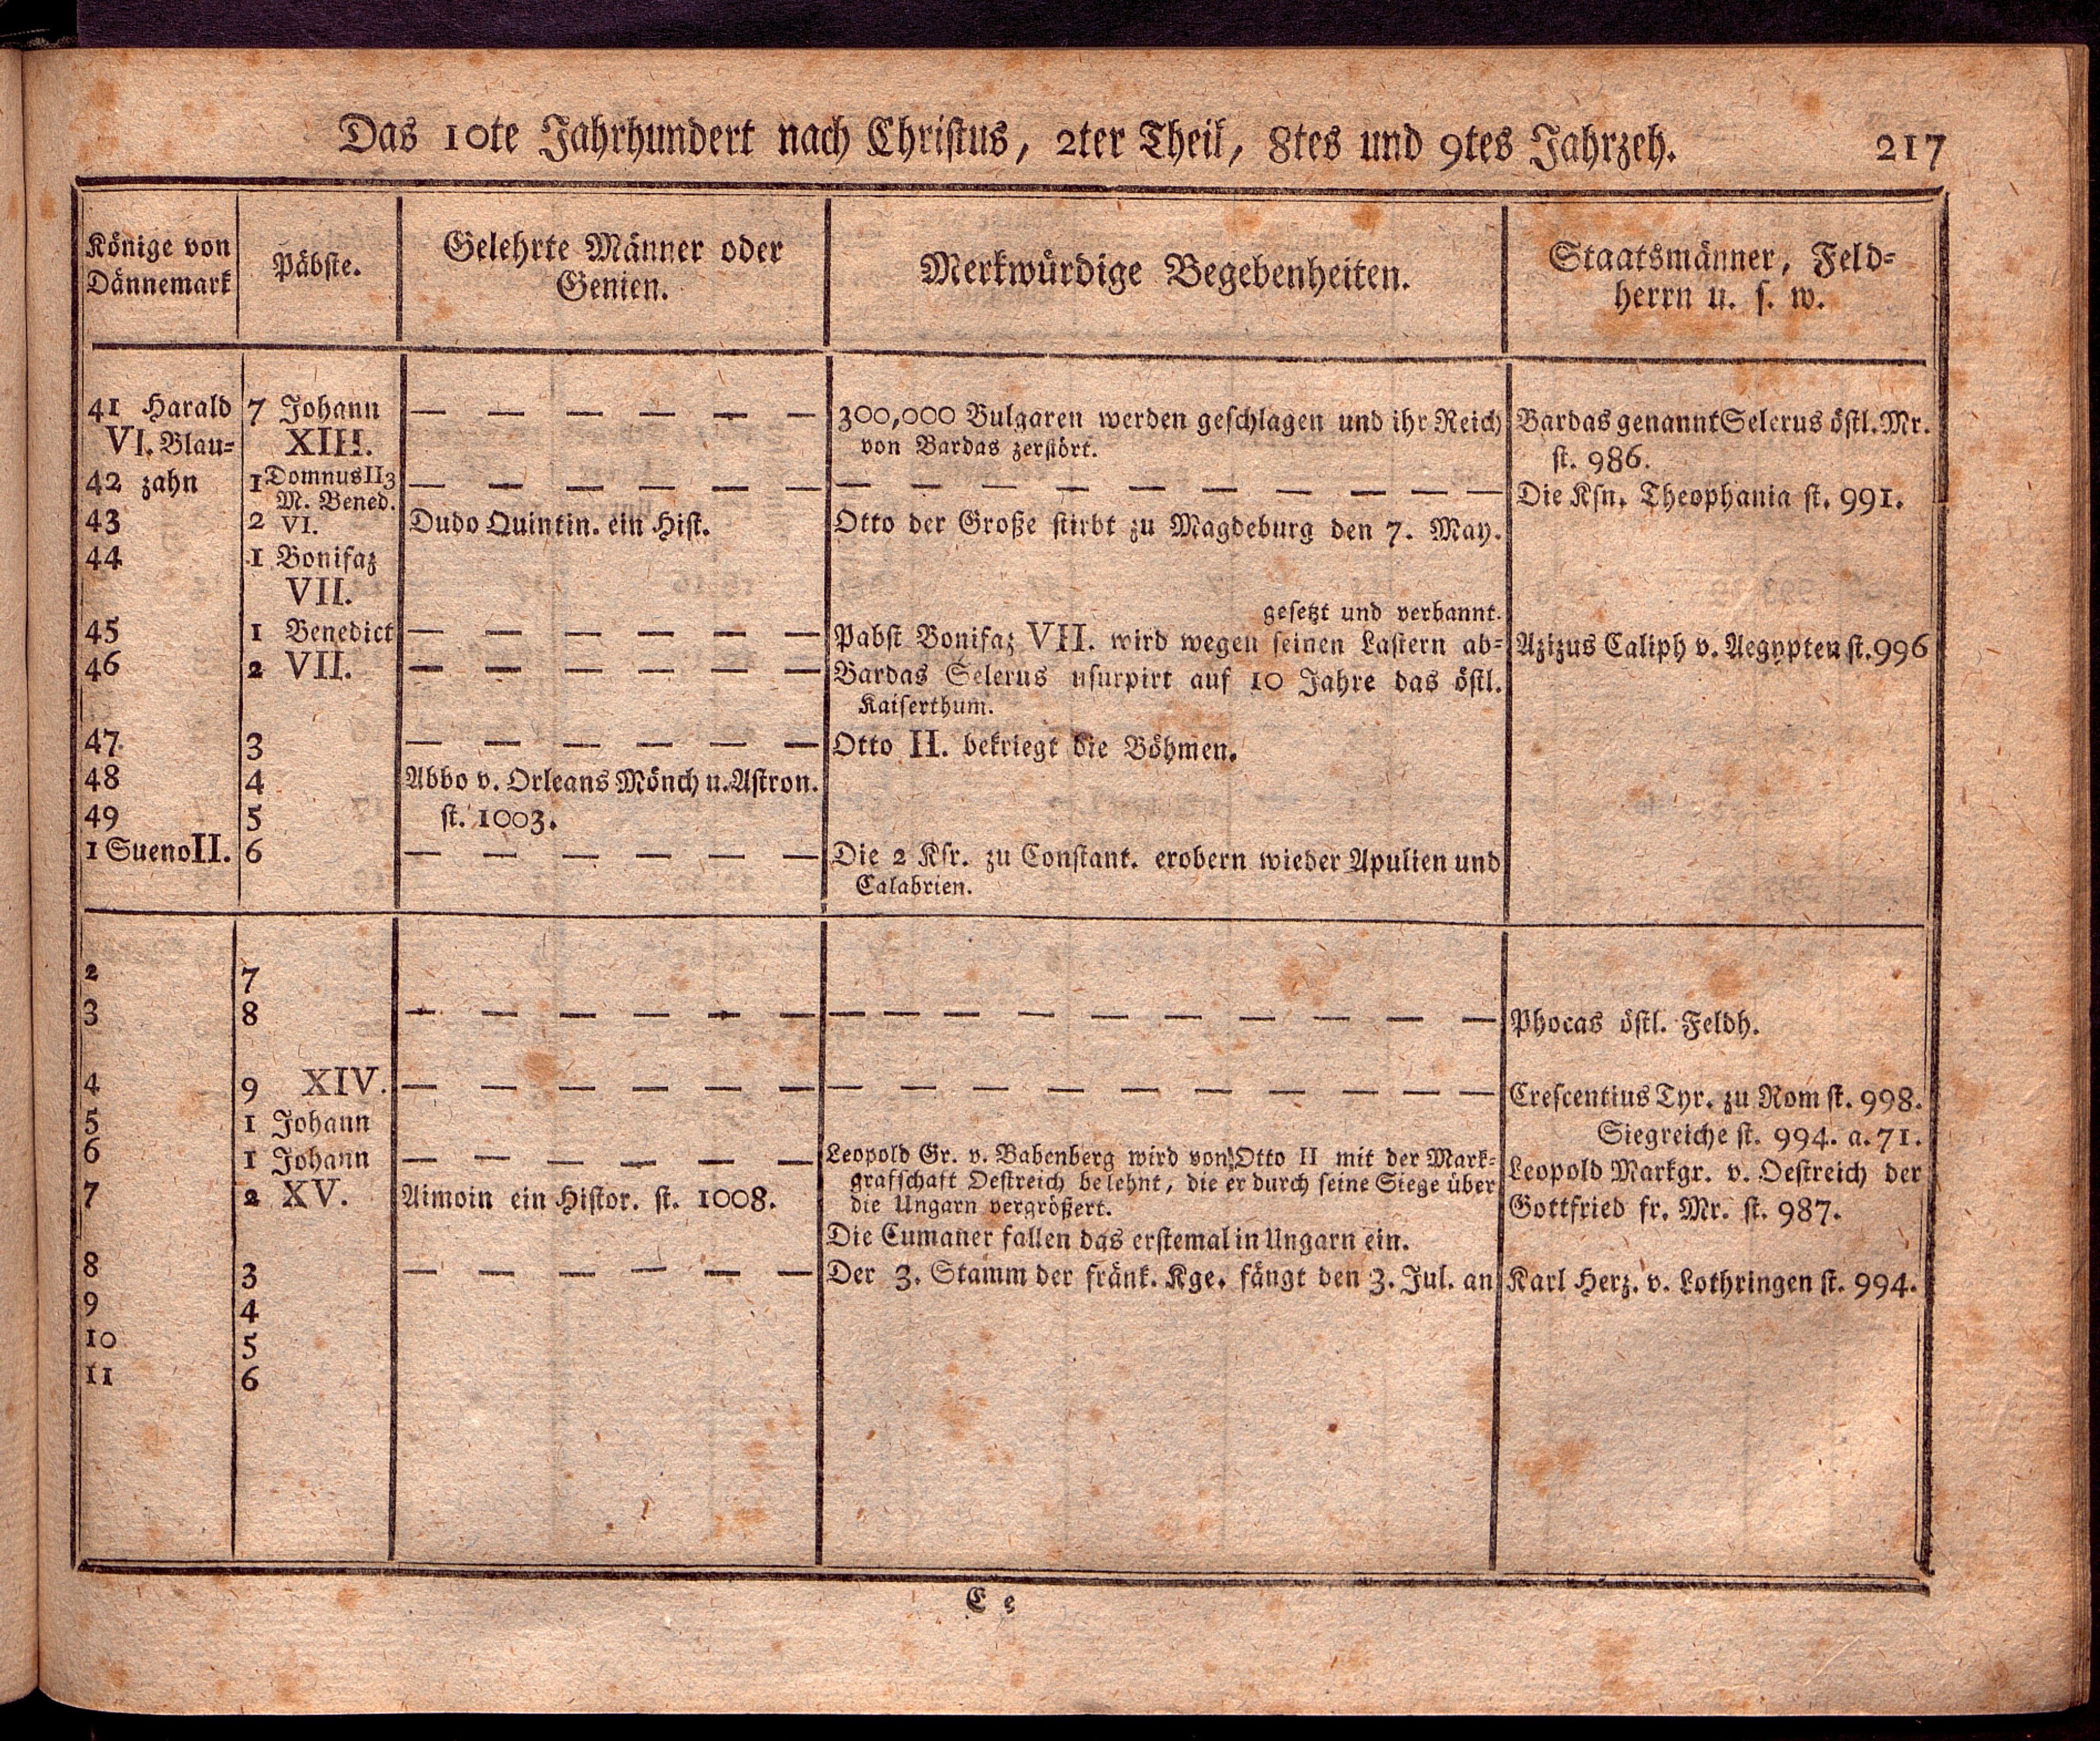 Das 10te Jahrhundert nach Christus, 2ter Theil, 8tes und 9tes Jahrzeh. 217
Könige von
Dännemark
Päbste.
Gelehrte Männer oder
Genien.
Merkwürdige Begebenheiten.
Staatsmänner, Feld-
herrn u. s. w.
41 Harald
VI. Blau-
42 zahn
43
44
45
46
47
48
49
1 Sueno II.
7 Johann
XIII.
1 Domnus II 3
M. Bened.
2 VI.
1 Bonifaz
VII.
1 Benedict
2 VII.
3
4
5
6
— — — — — —
— — — — — —
Dudo Quintin. ein Hist.
— — — — — —
— — — — — —
— — — — — —
Abbo v. Orleans Mönch u. Astron.
st. 1003.
— — — — — —
300,000 Bulgaren werden geschlagen und ihr Reich
von Bardas zerstört.
— — — — — — — — — —
Otto der Große stirbt zu Magdeburg den 7. May.
gesetzt und verbannt.
Pabst Bonifaz VII. wird wegen seinen Lastern ab-
Bardas Selerus usurpirt auf 10 Jahre das östl.
Kaiserthum.
Otto II. bekriegt die Böhmen.
Die 2 Ksr. zu Constant. erobern wieder Apulien und
Calabrien.
Bardas genannt Selerus östl. Mr.
st. 986.
Die Ksn. Theophania st. 991.
Azizus Caliph v. Aegypten st. 996
2
3
4
5
6
7
8
9
10
11
7
8
9 XIV.
1 Johann
1 Johann
2 XV.
3
4
5
6
— — — — — —
— — — — — —
— — — — — —
Aimoin ein Histor. st. 1008.
— — — — — —
— — — — — — — — — —
— — — — — — — — — —
Leopold Gr. v. Babenberg wird von Otto II mit der Mark-
grafschaft Oestreich belehnt, die er durch seine Siege über
die Ungarn vergrößert.
Die Cumaner fallen das erstemal in Ungarn ein.
Der 3. Stamm der fränk. Kge. fängt den 3. Jul. an
Phocas östl. Feldh.
Crescentius Tyr. zu Rom st. 998.
Siegreiche st. 994. a. 71.
Leopold Markgr. v. Oestreich der
Gottfried fr. Mr. st. 987.
Karl Herz. v. Lothringen st. 994.
E e